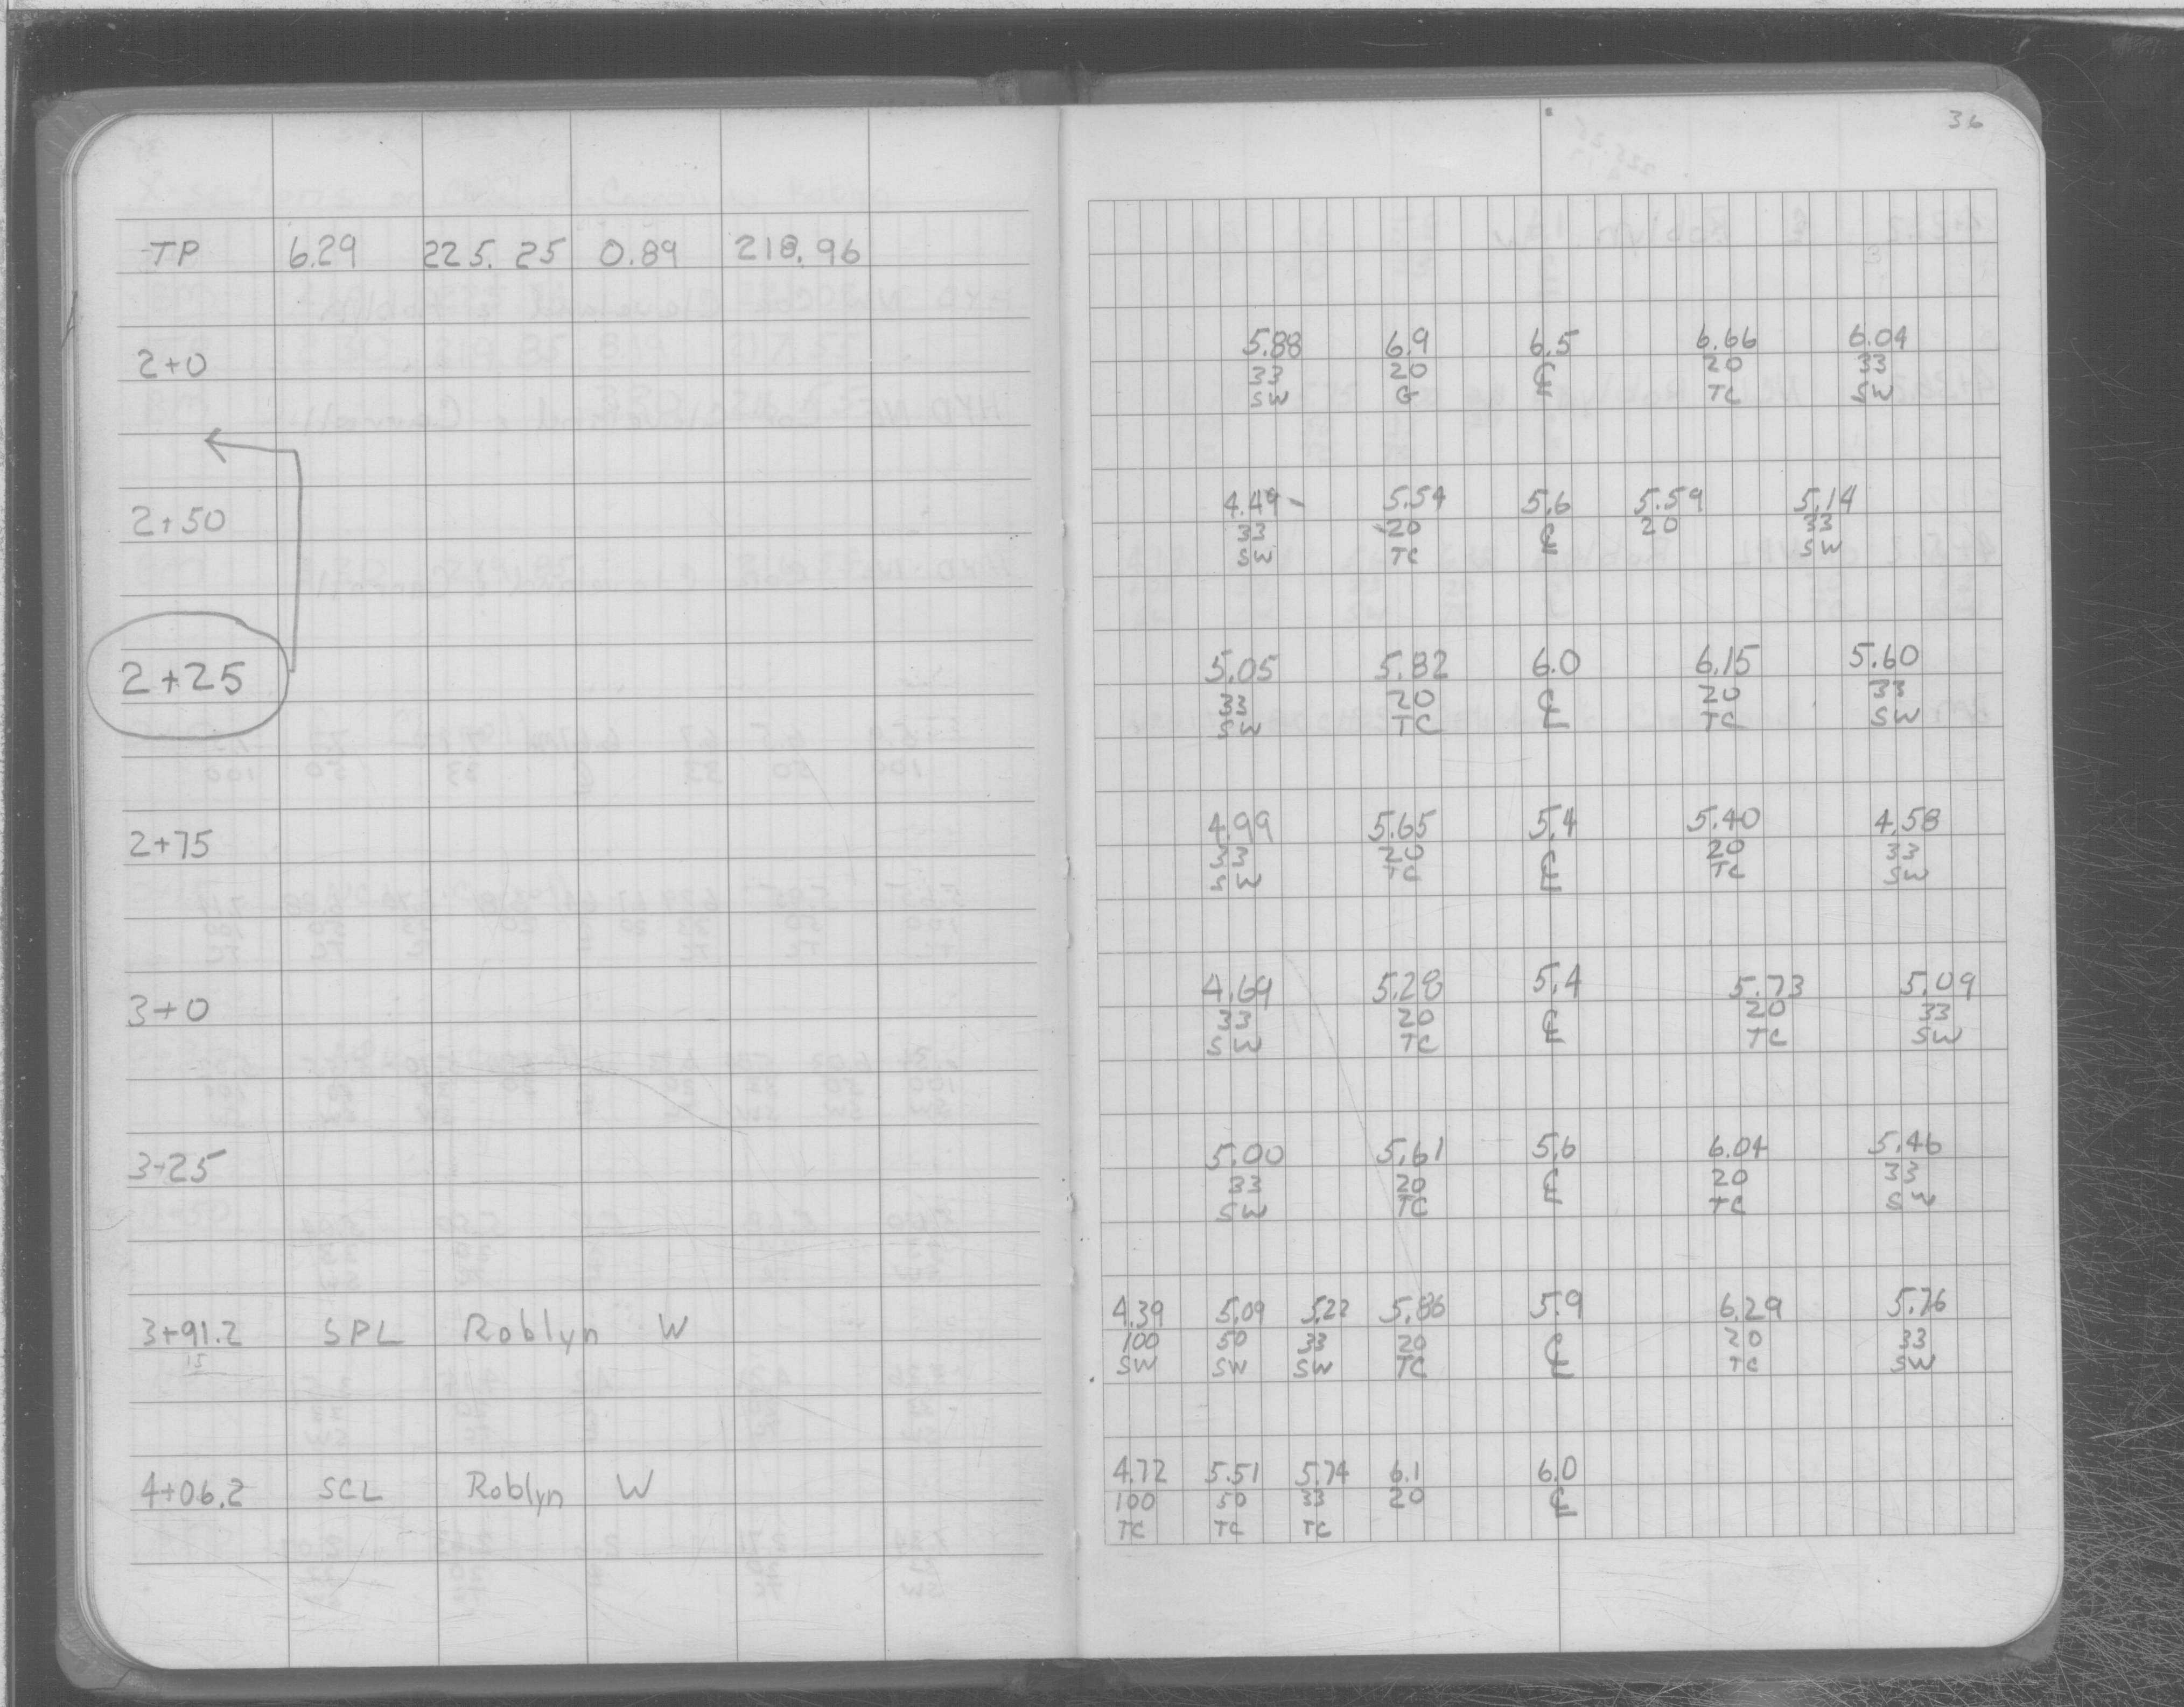 36
TP 6.29 225.25 0.89 218.96
2+0 5.88 6.9 6.5 6.66 6.04
33 20 ℄ 20 33
SW G TC SW
2+50 4.49 5.54 5.6 5.59 5.14
33 20 ℄ 20 33
SW TC SW
2+25 5.05 5.82 6.0 6.15 5.60
33 20 ℄ 20 33
SW TC TC SW
2+75 4.99 5.65 5.4 5.40 4.58
33 20 ℄ 20 33
SW TC TC SW
3+0 4.69 5.28 5.4 5.73 5.09
33 20 ℄ 20 33
SW TC TC SW
3+25 5.00 5.61 5.6 6.04 5.46
33 20 ℄ 20 33
SW TC TC SW
3+91.2 SPL Roblyn W 4.39 5.09 5.22 5.86 5.9 6.29 5.76
15 100 50 33 20 ℄ 20 33
SW SW SW TC TC SW
4+06.2 SCL Roblyn W 4.72 5.51 5.74 6.1 6.0
100 50 33 20 ℄
TC TC TC